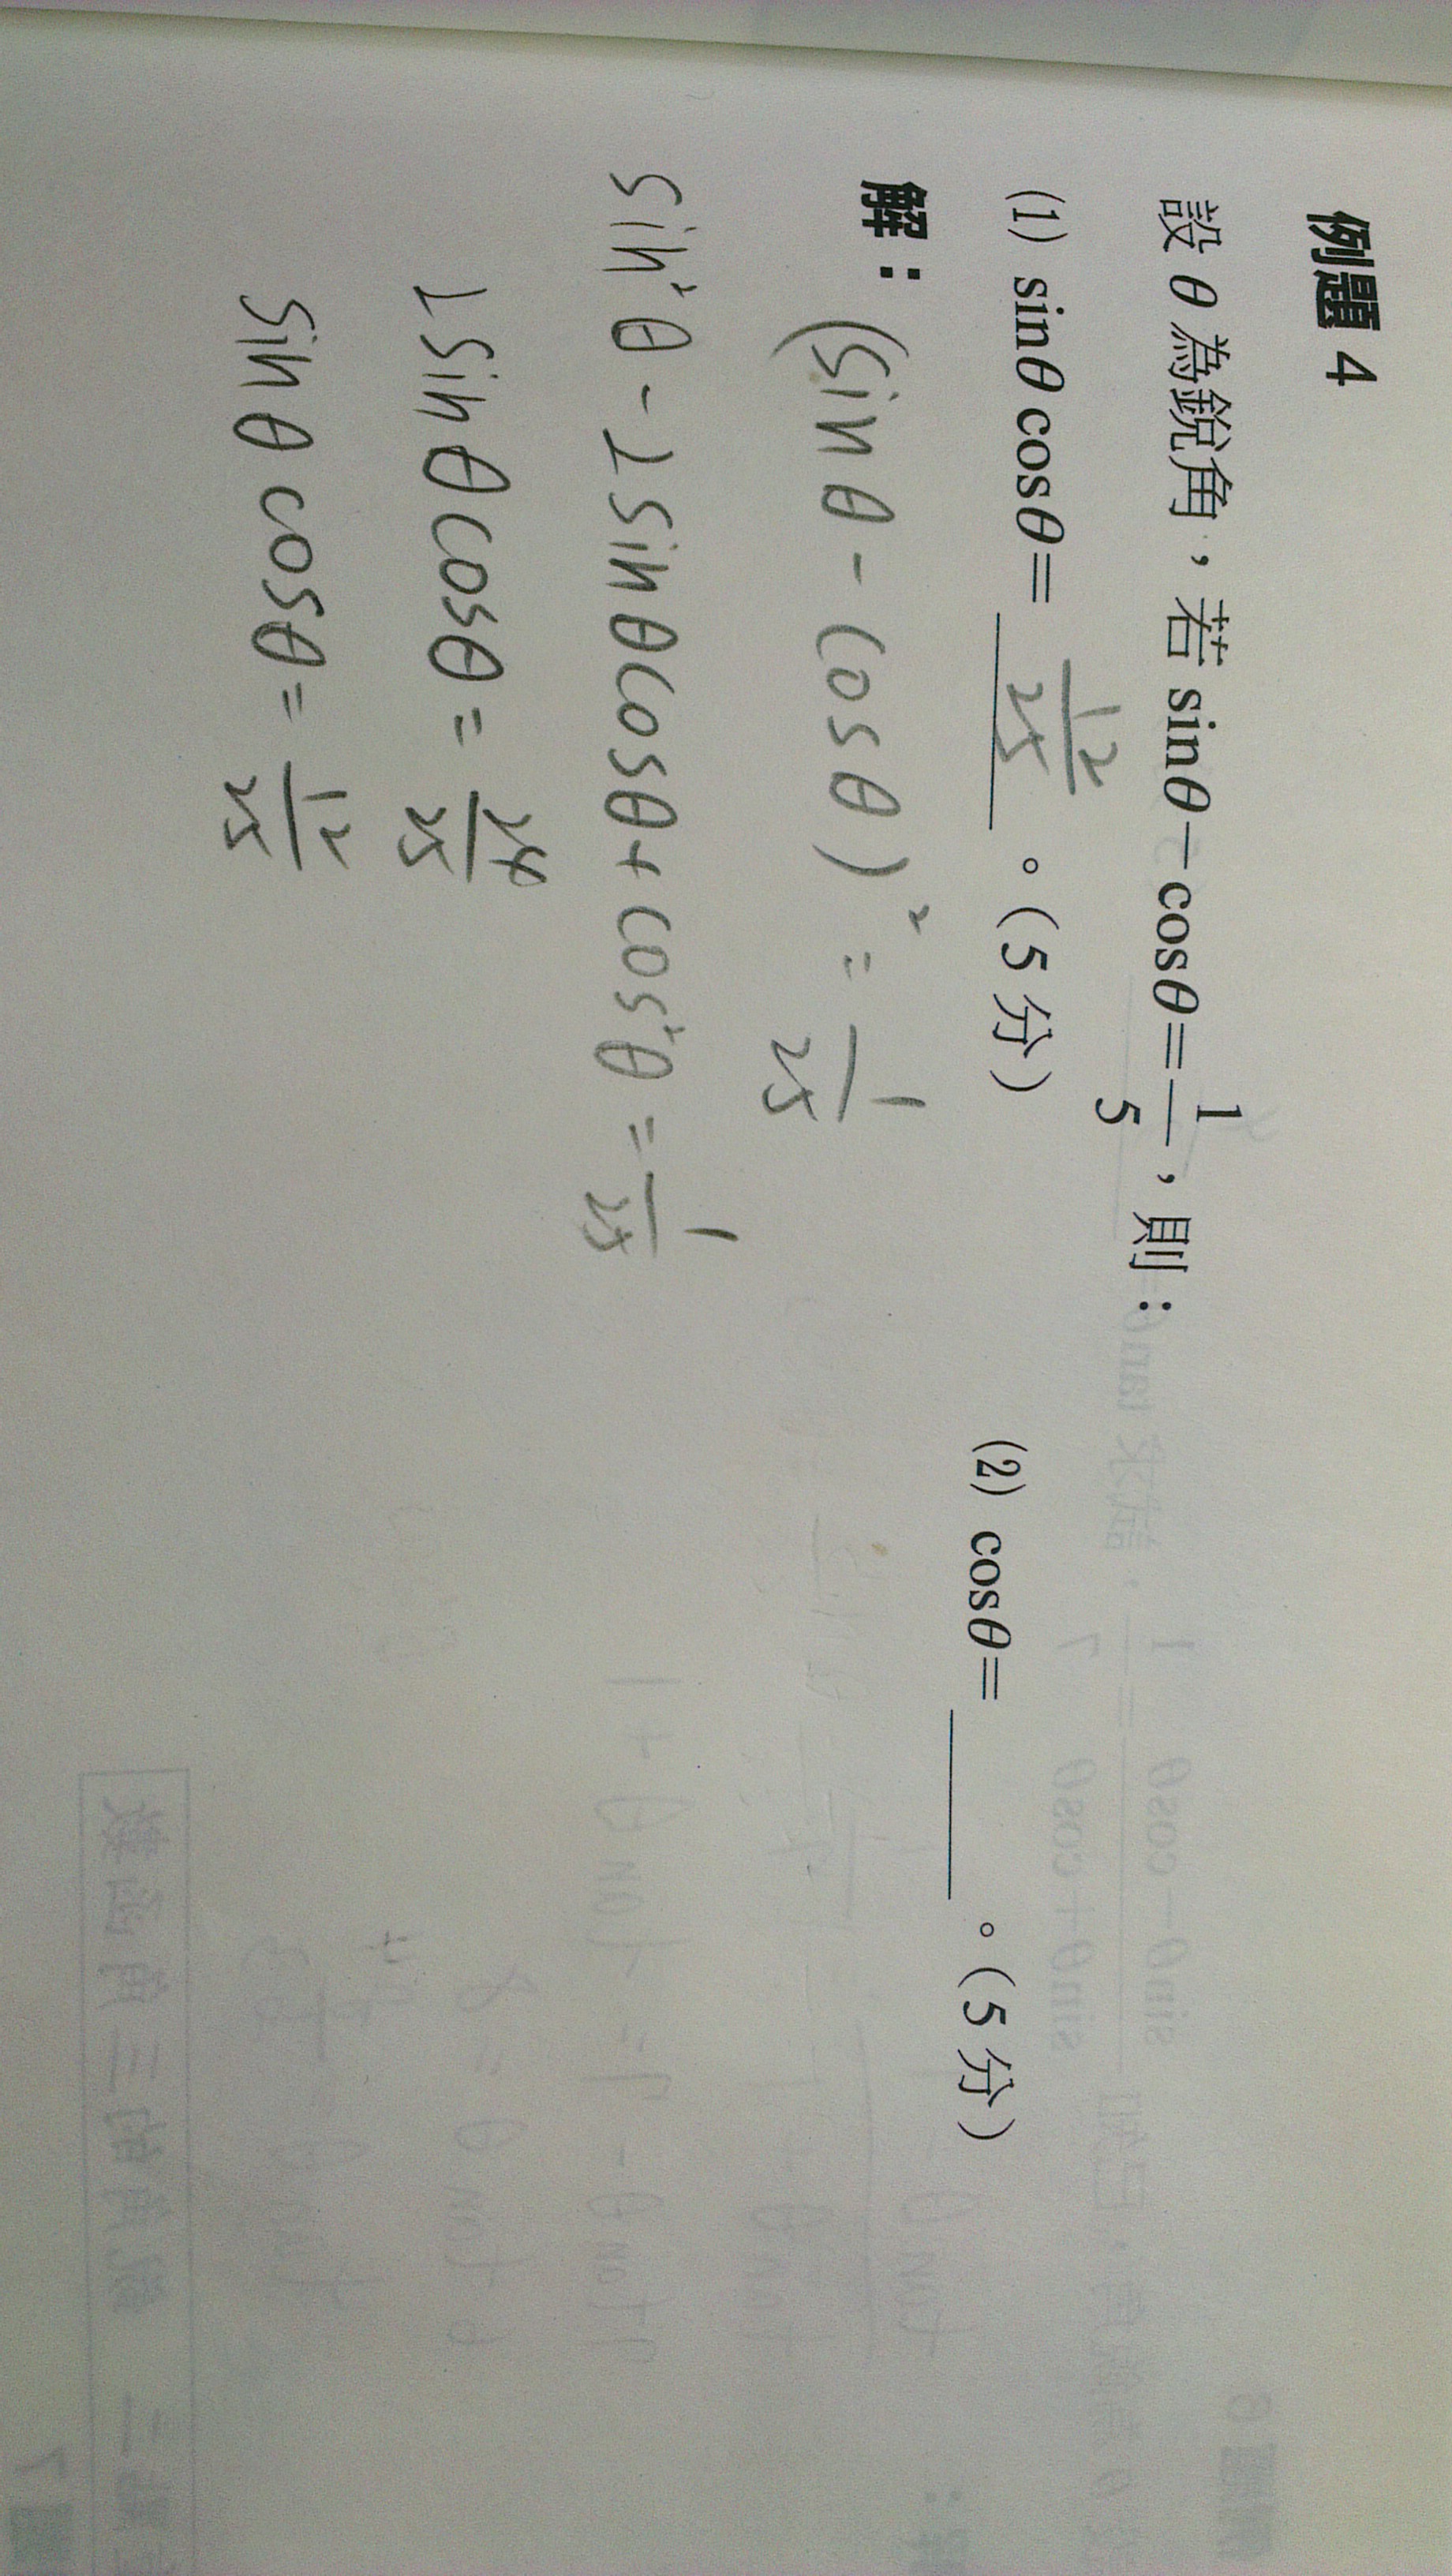 例題 4
設 θ 為銳角，若 sinθ−cosθ=1/5，則：
(1) sinθ cosθ= 12/25 。（5 分） (2) cosθ= ______ 。（5 分）
解：(sin θ - cos θ)² = 1/25
sin²θ - 2 sin θ cos θ + cos²θ = 1/25
2 sin θ cos θ = 24/25
sin θ cos θ = 12/25